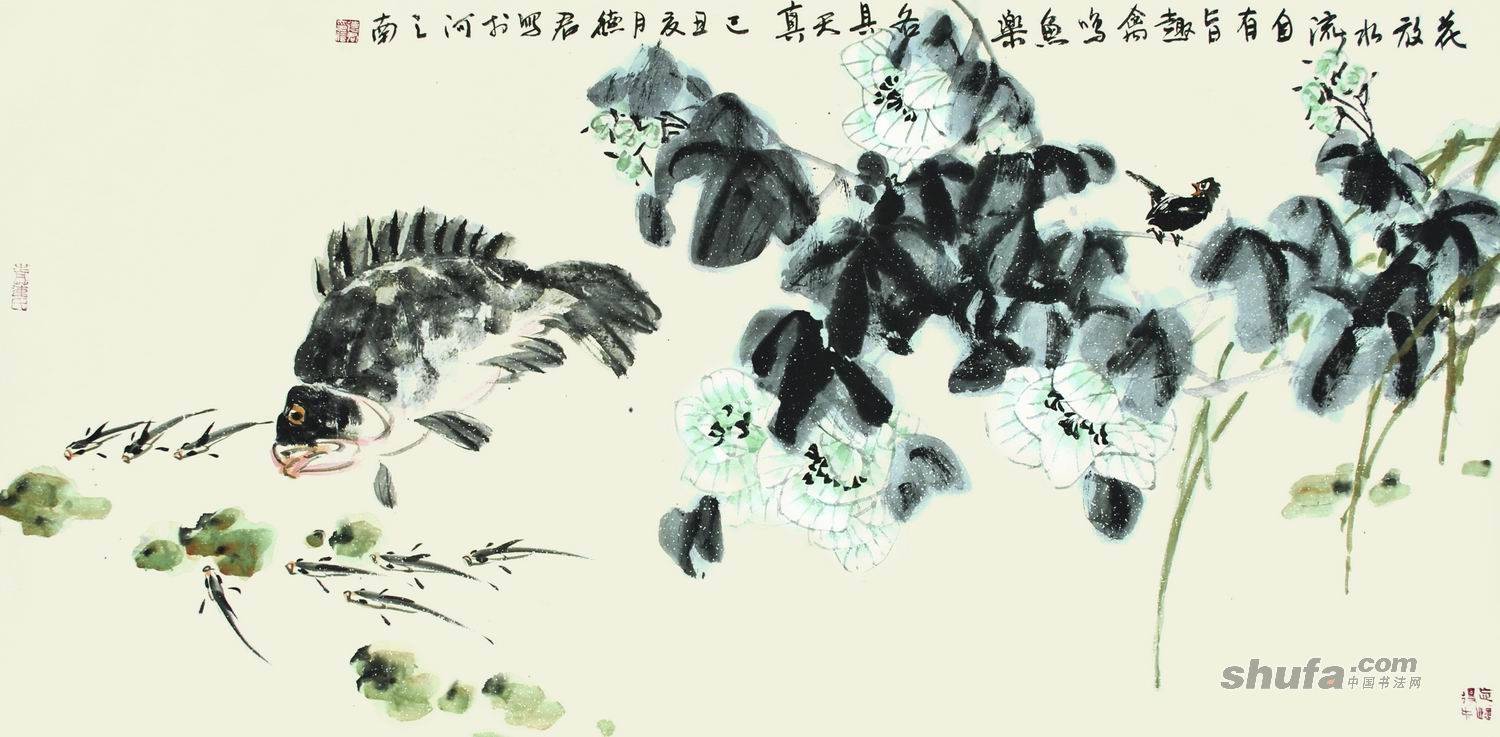 花放水流自有旨趣禽鳴魚樂各具天真 己丑夏月德君寫於河之南
shufa.com
中国书法网